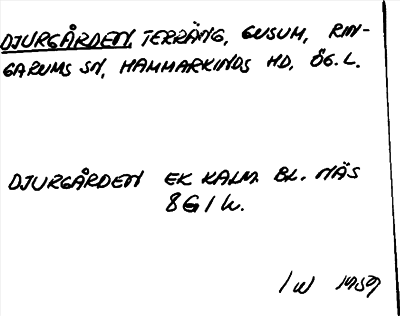 DJURGÅRDEN, TERRÄNG, GUSUM, RIN-
GARUMS SN, HAMMARKINDS HD, ÖG. L.
DJURGÅRDEN EK KALM. BL. NÄS
8G1h.
IW 1959